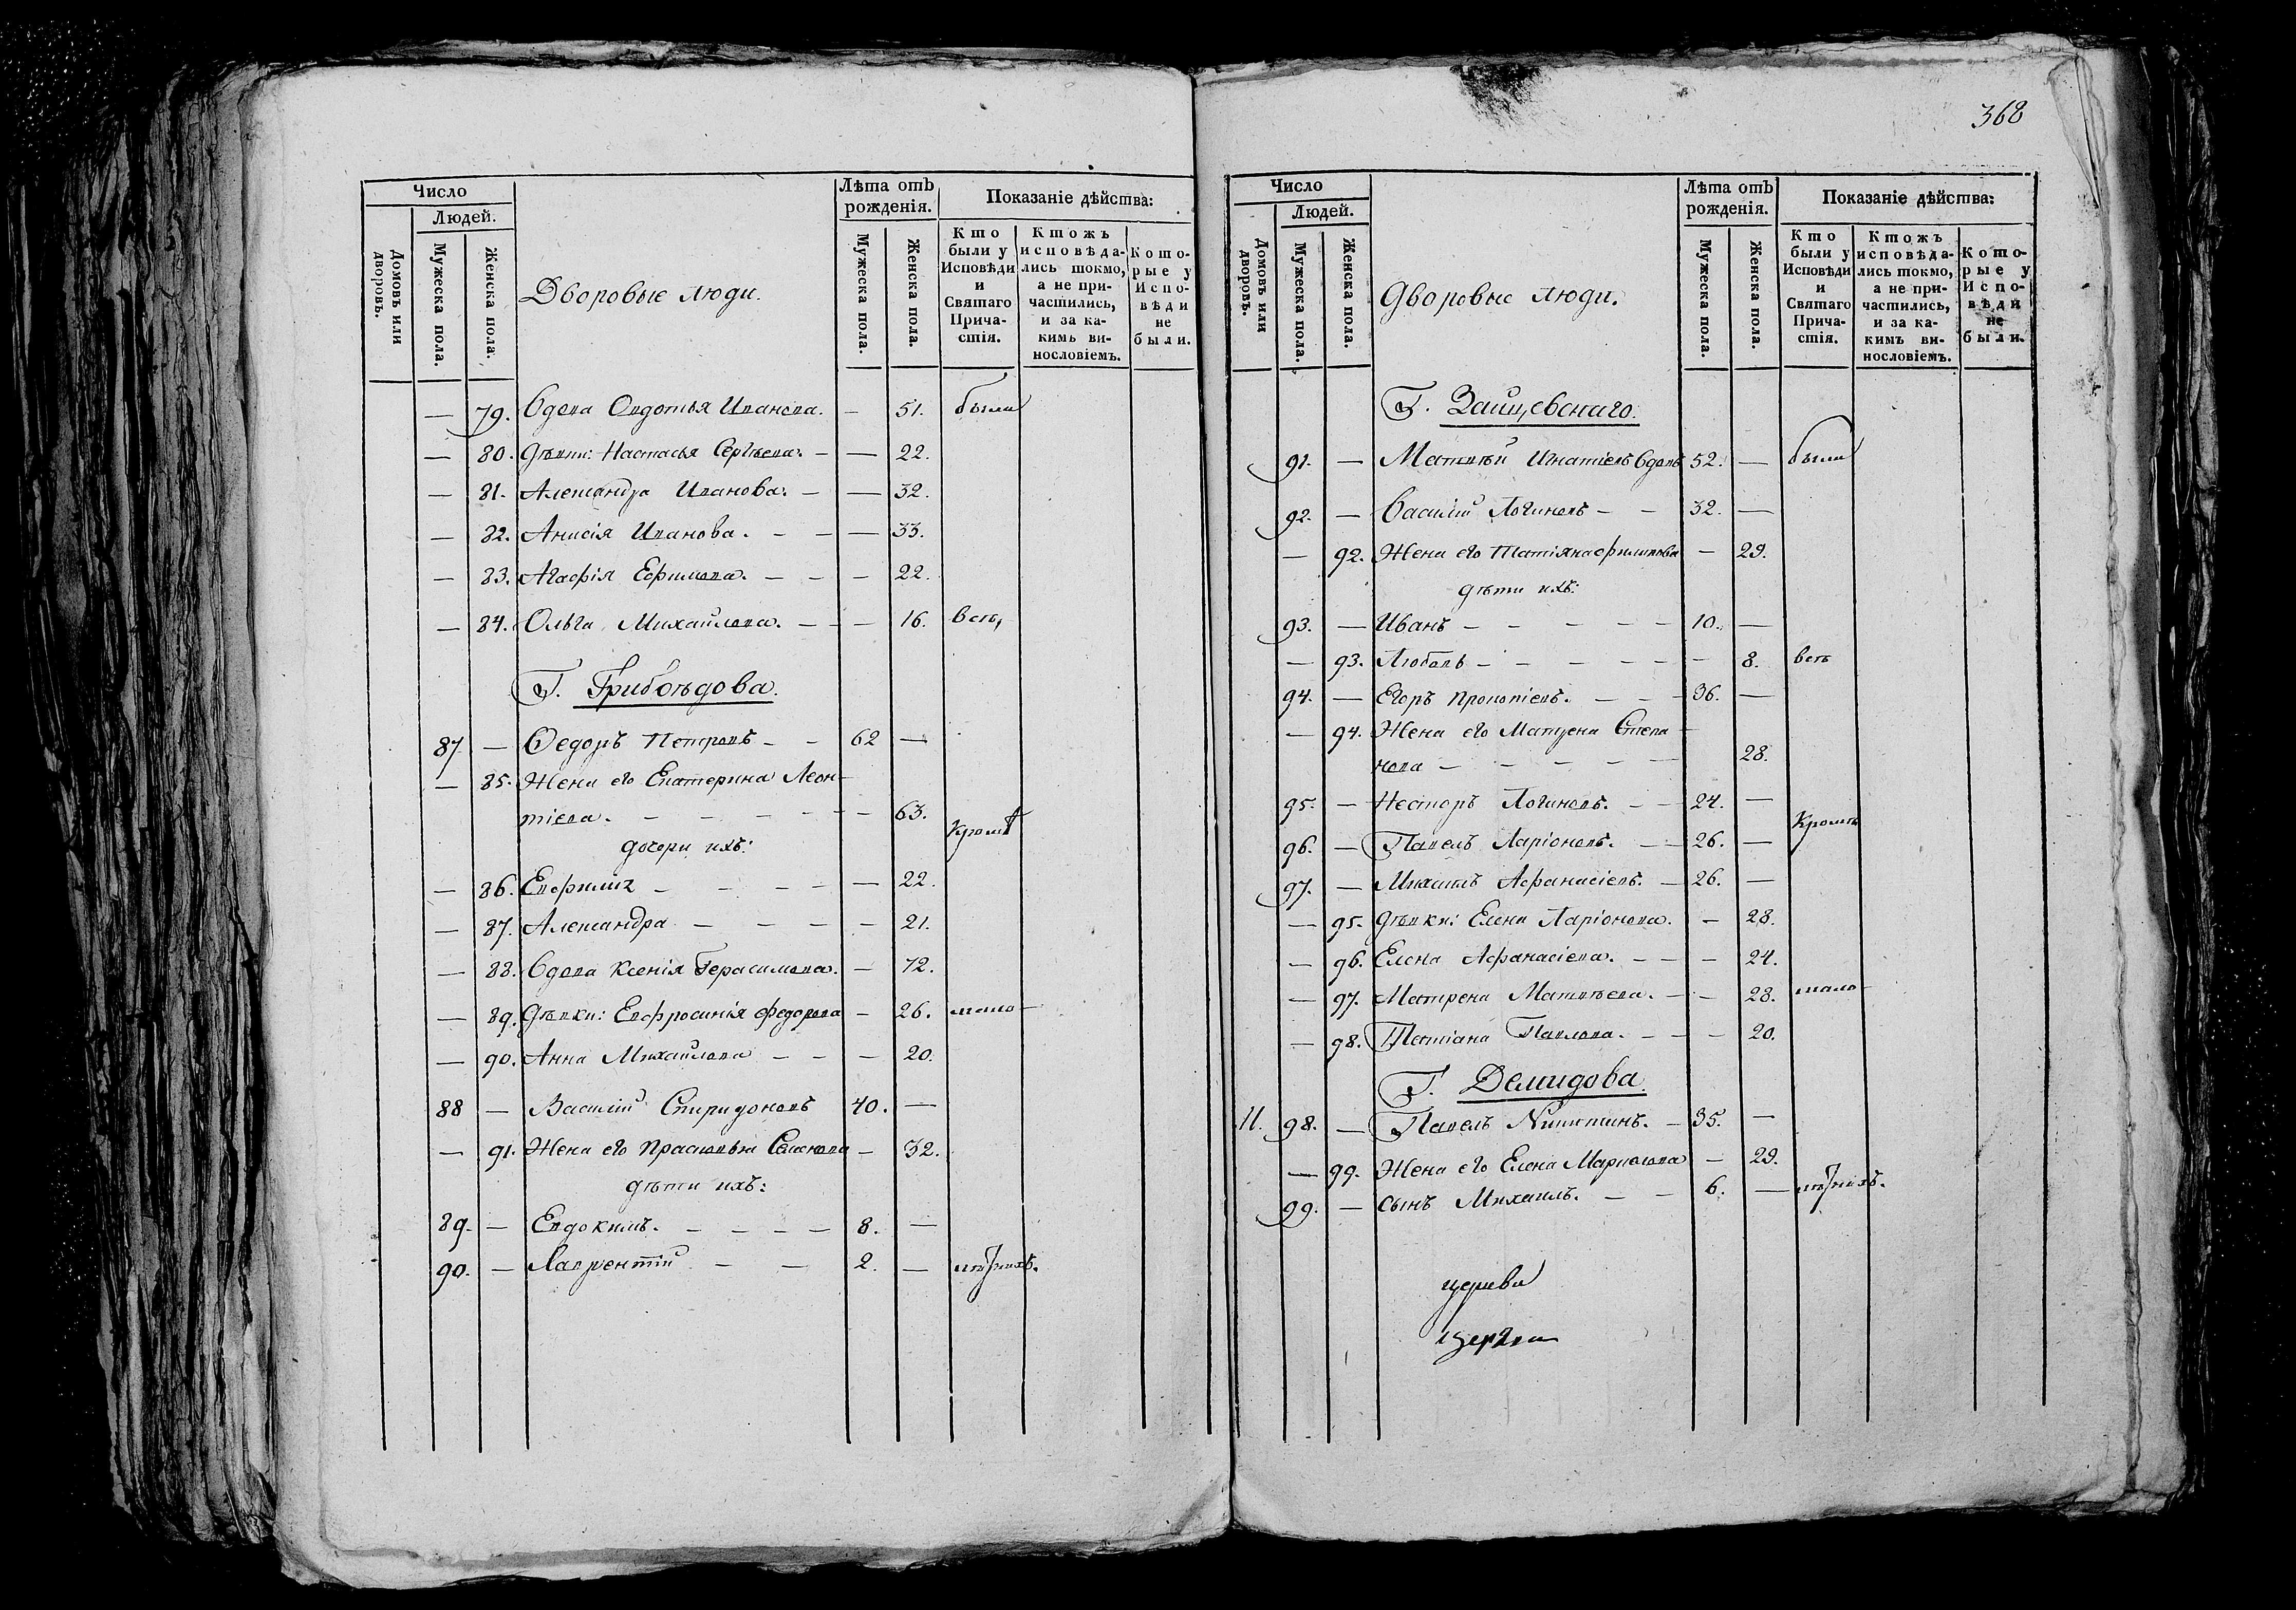 Число
Людей.
Домовъ или дворовъ.
Мужеска пола.
Женска пола.
Дворовые люди.
Лѣта отъ рожденія.
Мужеска пола.
Женска пола.
Показаніе дѣйства:
Кто были у Исповѣди и Святаго Причастія.
Ктожъ исповѣдались токмо, а не причастились, и за какимъ винословіемъ.
Которые у Исповѣди не были.
— 79. Вдова Овдотья Иванова. — 51. были
— 80. Дѣвки: Настасья Сергѣева. — — 22.
— 81. Александра Иванова. — — 32.
— 82. Анисія Иванова. — — 33.
— 83. Агафія Ефимова. — — — 22.
— 84. Ольга Михайлова. — — 16. всѣ,
Г. Грибоѣдова.
87 — Ѳедоръ Петровъ — — 62 —
— 85. Жена его Екатерина Леон-
тіева. — — — — — — 63. Кромѣ
дочери ихъ:
— 86. Евфимія — — — — — 22.
— 87. Александра — — — — — 21.
— 88. Вдова Ксенія Герасимова. — 72.
— 89. Дѣвки: Евфросинія Федорова — 26. мало-
— 90. Анна Михайлова — — — 20.
88 — Василій Спиридоновъ 40. —
— 91. Жена его Прасковья Семенова — 32.
дѣти ихъ:
89. — Евдокимъ. — — — — 8. —
90. — Лаврентій — — 2. — лѣтнихъ.
368
Число
Людей.
Домовъ или дворовъ.
Мужеска пола.
Женска пола.
Дворовые люди.
Лѣта отъ рожденія.
Мужеска пола.
Женска пола.
Показаніе дѣйства:
Кто были у Исповѣди и Святаго Причастія.
Ктожъ исповѣдались токмо, а не причастились, и за какимъ винословіемъ.
Которые у Исповѣди не были.
Г. Заицевскаго.
91. — Матвѣй Игнатіевъ вдовъ 52. — были
92. — Василій Логиновъ — — 32. —
— 92. Жена его Татіяна Филипова — 29.
дѣти ихъ:
93. — Иванъ — — — — — 10. —
— 93. Любовь — — — — — — 8. всѣ
94. — Егоръ Прокопіевъ. — — — 36. —
— 94. Жена его Матрена Степа-
нова — — — — — 28.
95. — Несторъ Логиновъ. — — 24. —
96. — Павелъ Ларіоновъ. — — 26. — Кромѣ
97. — Михаилъ Афанасіевъ. — 26. —
— 95. Дѣвки: Елена Ларіонова. — 28.
— 96. Елена Афанасіева. — — — 24.
— 97. Матрена Матвѣева. — — 28. мало-
— 98. Татіана Павлова. — — — 20.
Г. Демидова.
11. 98. — Павелъ Никитинъ. — 35. —
— 99. Жена его Елена — 29.
99. — Сынъ Михаилъ. — — 6. — лѣтнихъ.
церкви